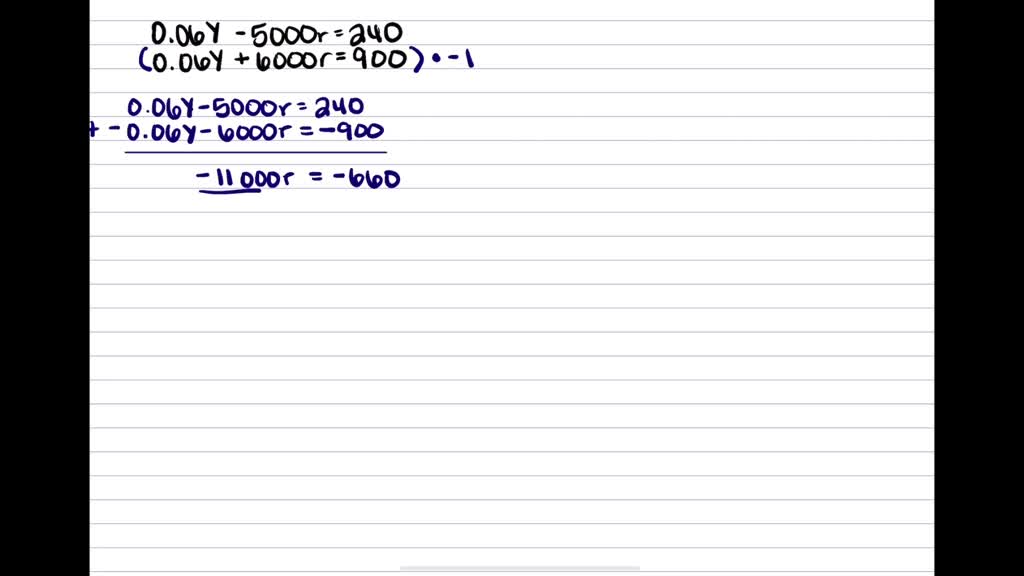 0.06Y - 5000r = 240
(0.06Y + 6000r = 900) • -1
0.06Y - 5000r = 240
+ - 0.06Y - 6000r = -900
-11000r = -660